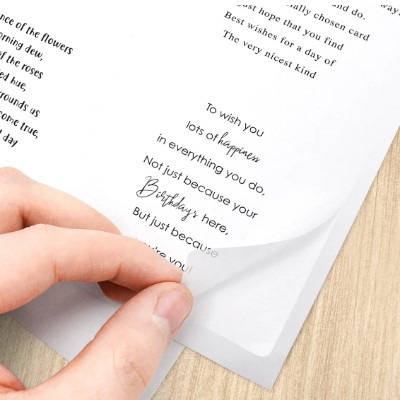 nce of the flowers
orning dew,
of the roses
ed hue,
rrounds us
come true,
l day
nd do.
way.
ust hope that you find
ially chosen card
Best wishes for a day of
The very nicest kind
To wish you
lots of happiness
in everything you do,
Not just because your
Birthday's here,
But just because
you're you!